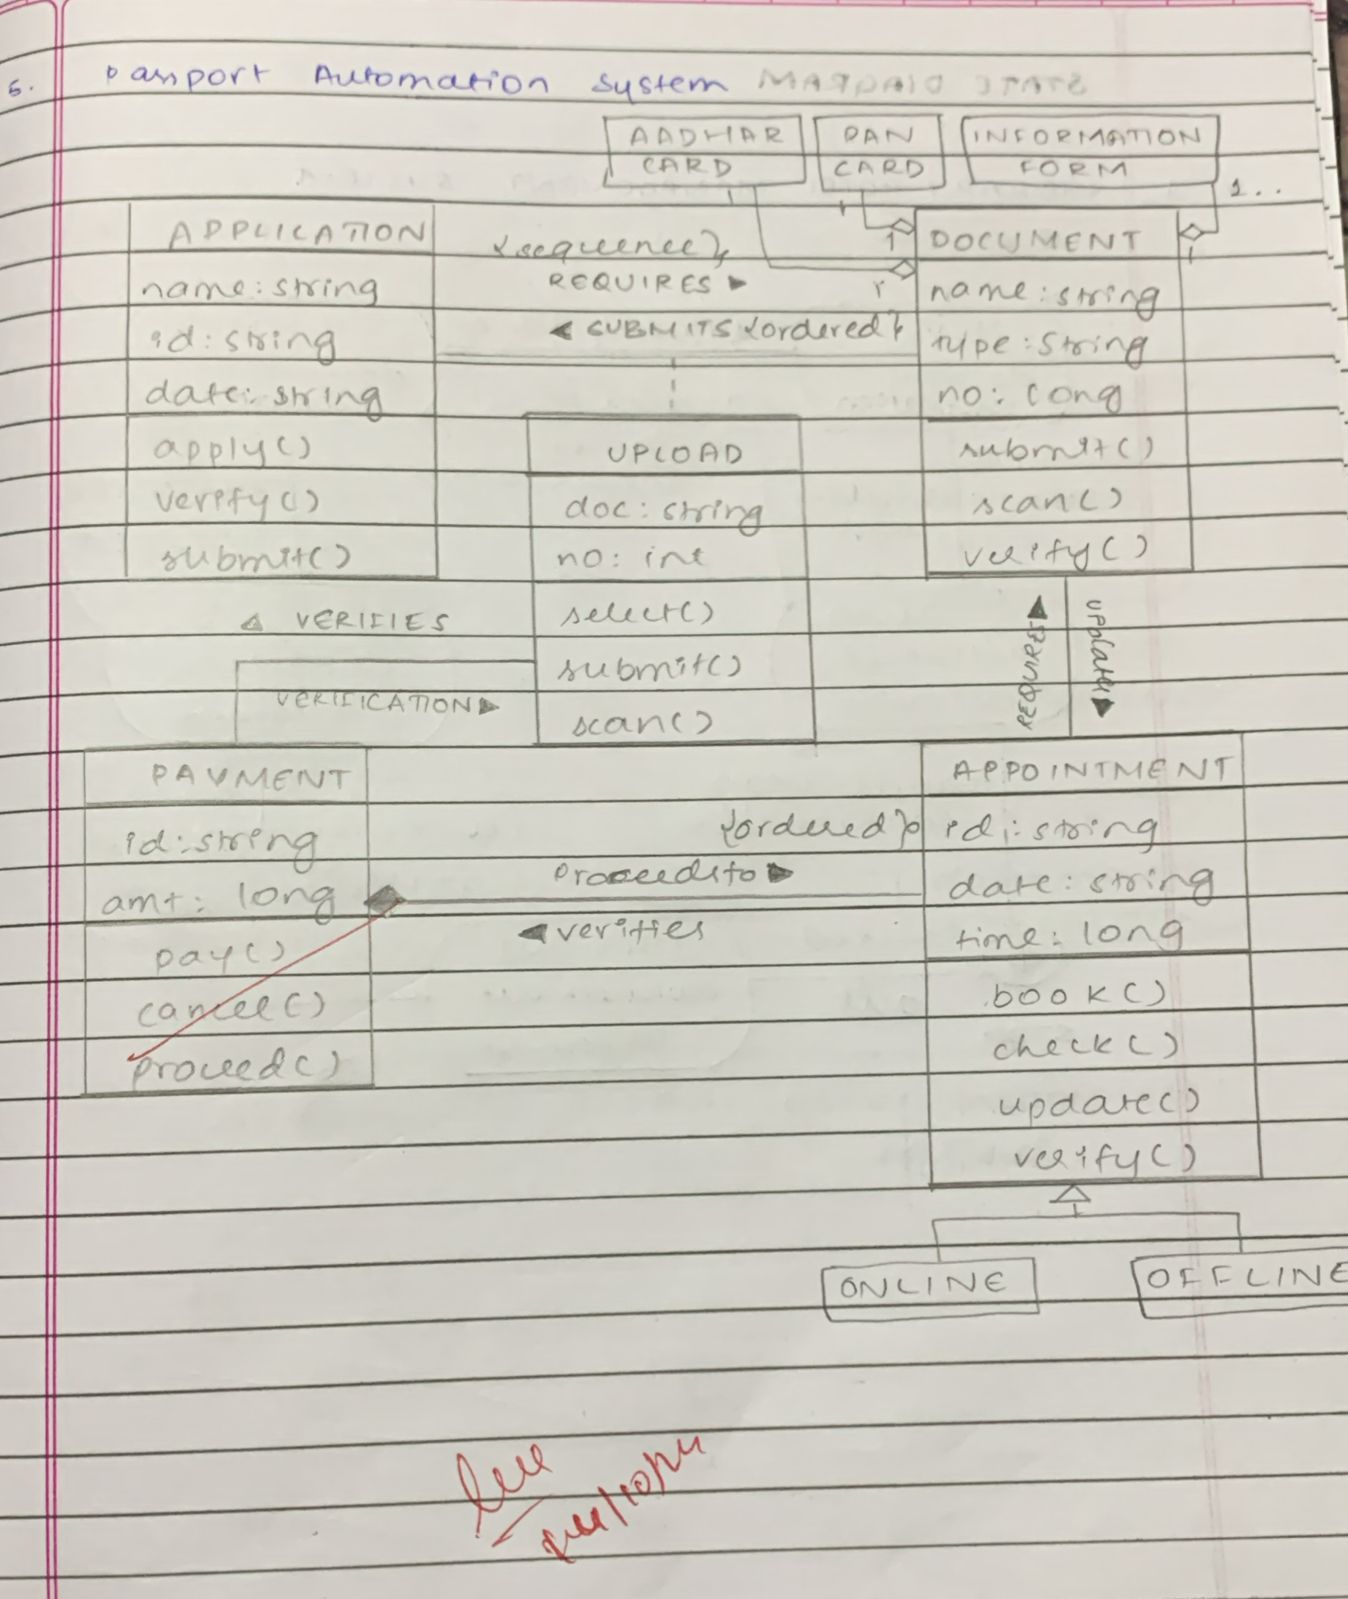 5. Passport Automation System
AADHAR CARD
PAN CARD
INFORMATION FORM
1..
APPLICATION
name: string
id: string
date: string
apply()
verify()
submit()
{sequence}
REQUIRES ▶
◀ SUBMITS {ordered}
1
1
DOCUMENT
name: string
type: string
no: long
submit()
scan()
verify()
UPLOAD
doc: string
no: int
select()
submit()
scan()
◁ VERIFIES
VERIFICATION ▶
REQUIRES ▶
updates ▶
PAYMENT
id: string
amt: long
pay()
cancel()
proceed()
{ordered}
Proceeds to ▶
◀ verifies
APPOINTMENT
id: string
date: string
time: long
book()
check()
update()
verify()
ONLINE
OFFLINE